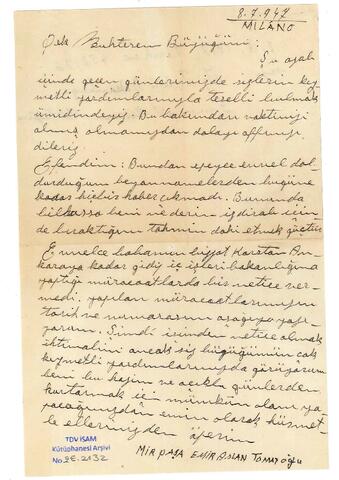 8.7.947
MİLANO
Pek Muhterem Büyüğüm:
Şu acıklı
içinde geçen günlerimizde sizlerin kıy
metli yardımlarınızla teselli bulmak
ümidindeyiz. Bu bakımdan vaktinizi
almış olmamızdan dolayı affınızı
dileriz
Efendim: Bundan epeyce evvel dol
durduğum beyannamelerden bugüne
kadar hiçbir haber çıkmadı. Bununda
bilhassa beni ne derin ızdırab için
de bıraktığını tahmin
Evvelce babamın bizzat Karstan An
karaya kadar gidip iç işleri bakanlığına
yaptığı müracaatlarda bir netice ver
medi. yapılan müracaatlarımızın
tarih ve numarasını aşağıya yazı
yorum. Şimdi işinden netice almak
ihtimalini ancak siz büyüğümün çok
kıymetli yardımlarınızda görüyorum
beni bu hazin ve acıklı günlerden
kurtarmak için mümkün olanı ya
pacağınızdan emin olarak hürmet
le ellerinizden öperim
MİRPAŞA EMİRASLAN
TDV İSAM
Kütüphanesi Arşivi
No 2E.2132